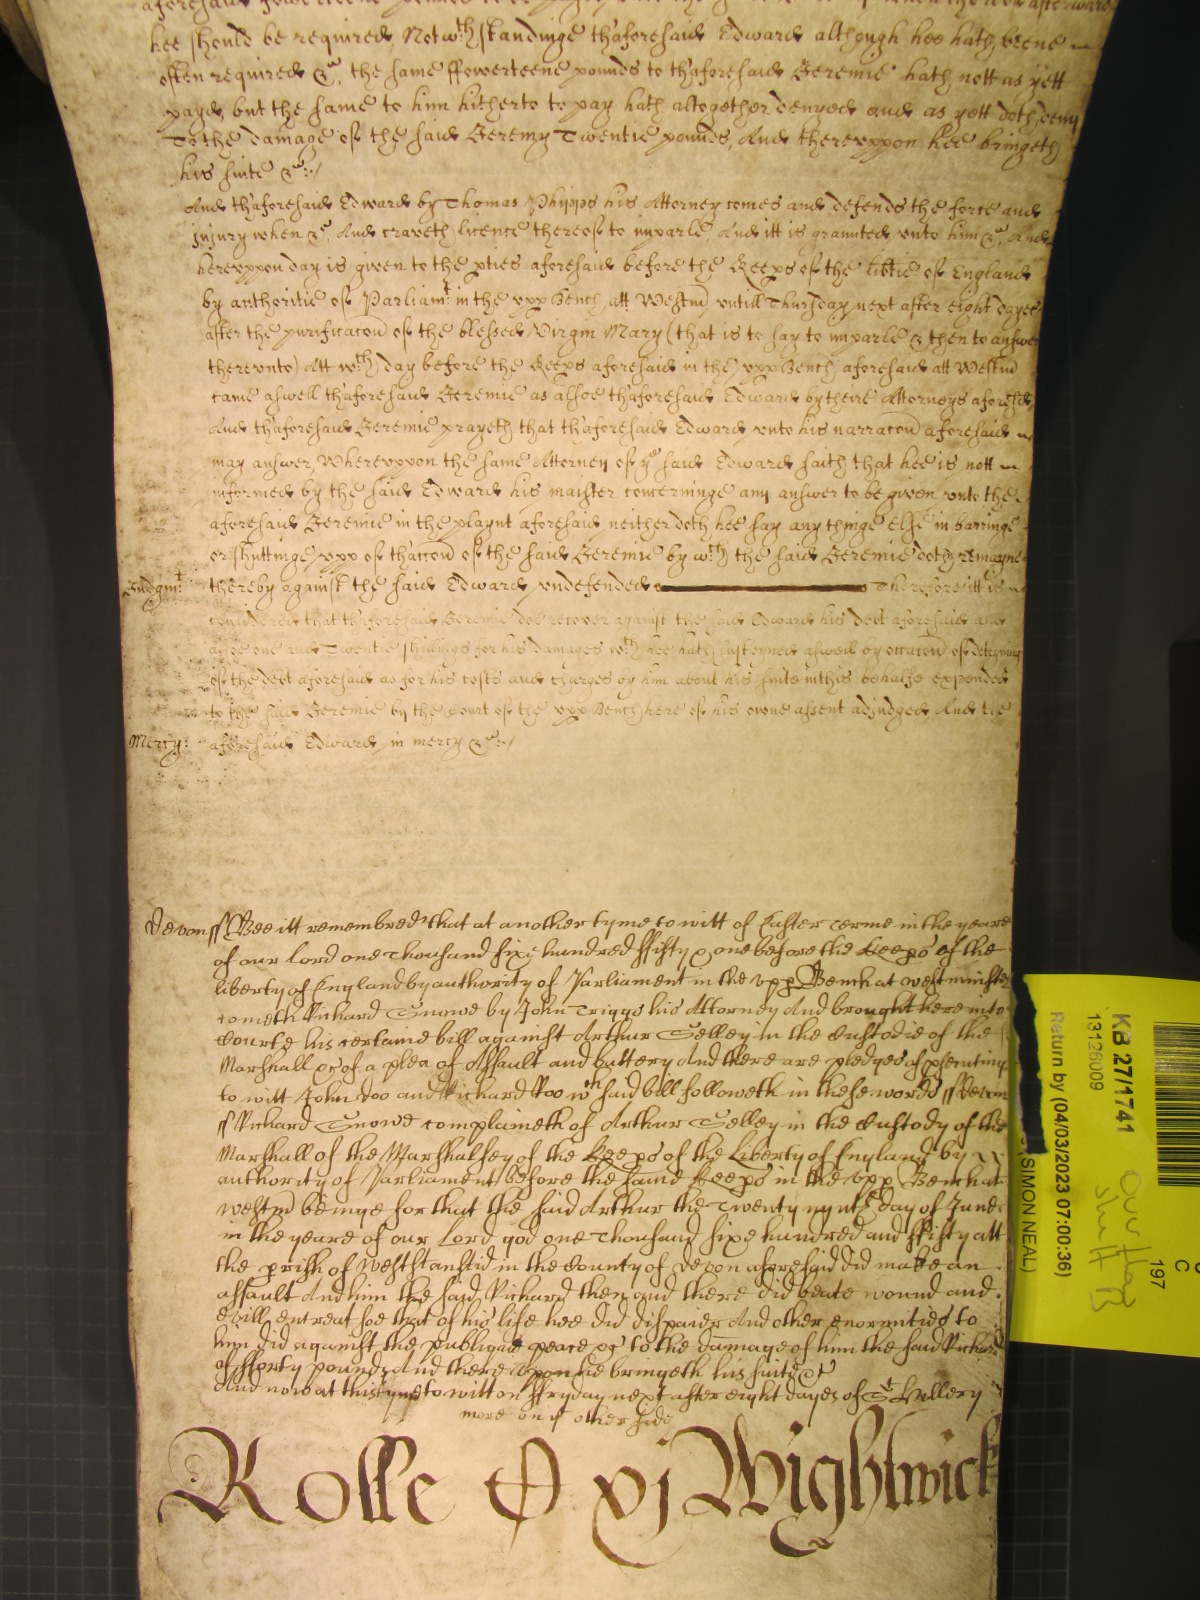 hee should be required Notwth standinge thaforesaid Edward although hee hath beene
often required &c, the same ffowerteene pounds to thaforesaid Jeremie hath nott as yett
payd, but the same to him hitherto to pay hath altogether denyed and as yett doth deny
To the damage of the said Jeremy Twentie pounds, And thereuppon hee bringeth
his suite &c:/
And thaforesaid Edward by Thomas Phipps his Attorney comes and defends the force and
injury when &c, And craveth licence thereof to imparle, And itt is graunted unto him &c, And
hereuppon day is given to the pties aforesaid before the Keeps of the libtie of England
by authoritie of Parliamt in the upp Bench att Westm untill Thursday next after eight dayes
after the purificacon of the blessed Virgin Mary (that is to say to imparle & then to answer
thereunto) Att wch day before the Keeps aforesaid in the upp Bench aforesaid att Westm
came aswell thaforesaid Jeremie as alsoe thaforesaid Edward by theire Attorneys aforesd
And thaforesaid Jeremie prayeth that thaforesaid Edward unto his narracon aforesaid
may answer, Whereuppon the same Attorney of ye said Edward saith that hee is nott
informed by the said Edward his maister concerninge any answer to be given unto the
aforesaid Jeremie in the playnt aforesaid neither doth hee say any thinge else in barringe
or shuttinge upp of thaccon of the said Jeremie by wch the said Jeremie doth remayne
Judgmt: thereby against the said Edward undefended Therefore itt is
considered that thaforesaid Jeremie doe recover against the said Edward his debt aforesaid and
alsoe one and Twentie shillings for his damages wch hee hath susteyned aswell by occacon of deteyning
of the debt aforesaid as for his costs and charges by him about his suite in this behalfe expended
to the said Jeremie by the Court of the upp Bench here of his owne assent adjudged And the
Mercy: aforesaid Edward in mercy &c:/
Devon ss Bee itt remembred that at another tyme to witt of Easter terme in the yeare
of our Lord one Thousand sixe hundred ffifty & one before the Keeps of the
liberty of England by authority of Parliament in the upp Bench at Westminster
cometh Richard Snowe by John Triggs his Attorney And brought here into
Courte his certaine bill against Arthur Selley in the Custodie of the
Marshall &c of a plea of Assault and battery And there are pledges of psecuting
to witt John Doo and Richard Roo wch said bill followeth in these words ss Devon
ss Richard Snowe complaineth of Arthur Selley in the Custody of the
Marshall of the Marshalsey of the Keeps of the Liberty of England by
authority of Parliament before the same Keeps in the upp Bench at
Westm beinge for that the said Arthur the Twenty nynth day of June
in the yeare of our Lord god one Thousand sixe hundred and ffifty att
the prish of in the County of Devon aforesaid did make an
assault And him the said Richard then and there did beate wound and
evill entreat soe that of his life hee did dispaier And other enormities to
him did against the publique peace &c to the damage of him the said Richard
of fforty pounds And there upon he bringeth his suite &c
And now at this tyme to witt on ffryday next after eight dayes of St Hillery
more on ye other side
Rolle xj Wightwick
KB 27/1741
13126009
Return by (04/03/2023 07:00:36)
(SIMON NEAL)
197
C